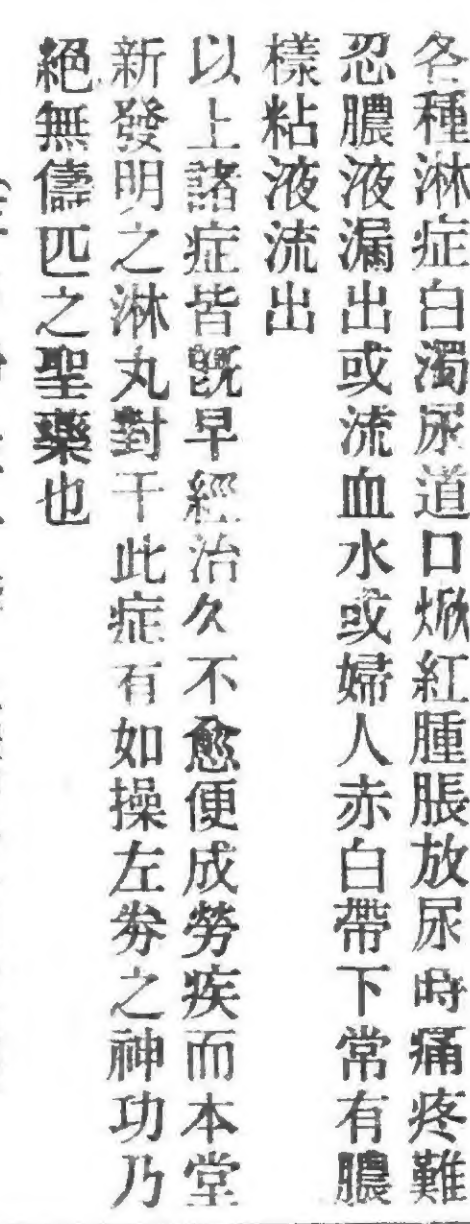 各種淋症白濁尿道口焮紅腫脹放尿時痛疼難
忍膿液漏出或流血水或婦人赤白帶下常有膿
樣粘液流出
以上諸症皆旣早經治久不愈便成勞疾而本堂
新發明之淋丸對干此症有如操左券之神功乃
絕無儔匹之聖藥也